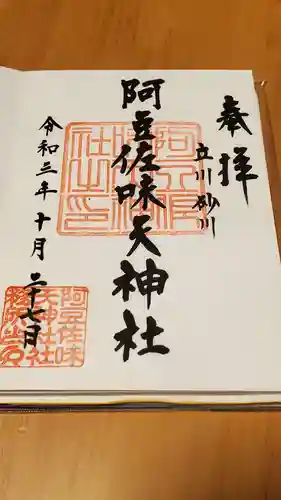 奉拝
立川 砂川
阿豆佐味天神社
令和三年 十月 二十七日
阿豆佐味
天神社社
務所之印